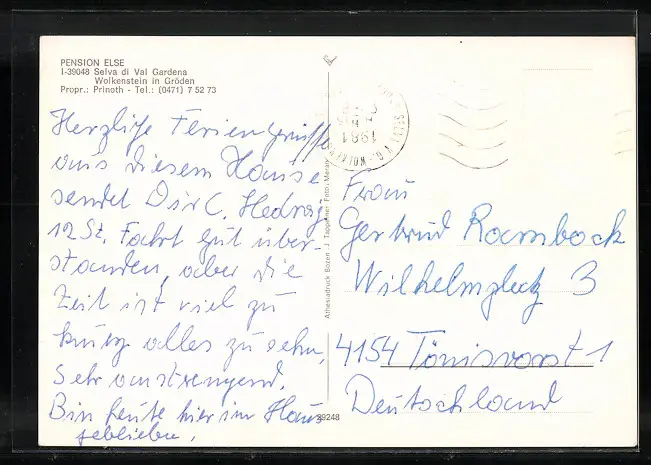 PENSION ELSE
I-39048 Selva di Val Gardena
Wolkenstein in Gröden
Propr.: Prinoth - Tel.: (0471) 7 52 73
Herzliche Feriengrüsse
aus diesem Hause
sendet Dir C. Hedwig
12 St. Fahrt gut über-
standen, aber die
Zeit ist viel zu
kurz alles zu sehn,
Sehr anstrengend.
Bin heute hier im Haus
geblieben.
Athesiadruck Bozen
Foto:
39248
1981
Frau
Gertrud Rambock
Wilhelmplatz 3
4154 Tönisvorst 1
Deutschland